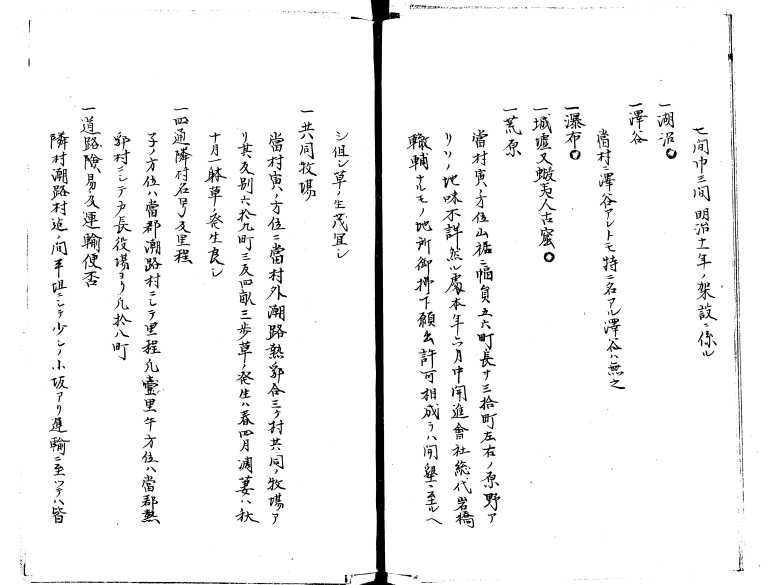 七間巾三間明治十一年ノ架設ニ係ル
一湖沼○
一澤谷
當村ニ澤谷アレトモ特ニ名アル澤谷ハ無之
一瀑布○
一城墟又蝦夷人古窟○
一荒原
當村寅ノ方位山裾ニ幅負五六町長サ三拾町左右ノ原野ア
リソノ地味不詳然ル處本年六月中開進會社総代岩橋
轍輔ナルモノ地所御拂下願出許可相成ラハ開墾ニ至ルヘ
シ但シ草ノ生茂宜シ
一共同牧場
當村寅ノ方位ニ當村外潮路熟郛合三ケ村共同ノ牧場ア
リ其反別六拾九町三反四畝三歩草ノ発生ハ春四月凋萎ハ秋
十月一躰草ノ発生良シ
一四通隣村名号及里程
子ノ方位ハ當郡潮路村ニシテ里程凡壹里午方位ハ當郡熱
郛村ニシテ戸長役場ヨリ凡拾八町
一道路険易及運輸便否
隣村潮路村迄ノ間平坦ニシテ少シノ小坂アリ運輸ニ至ツテハ皆